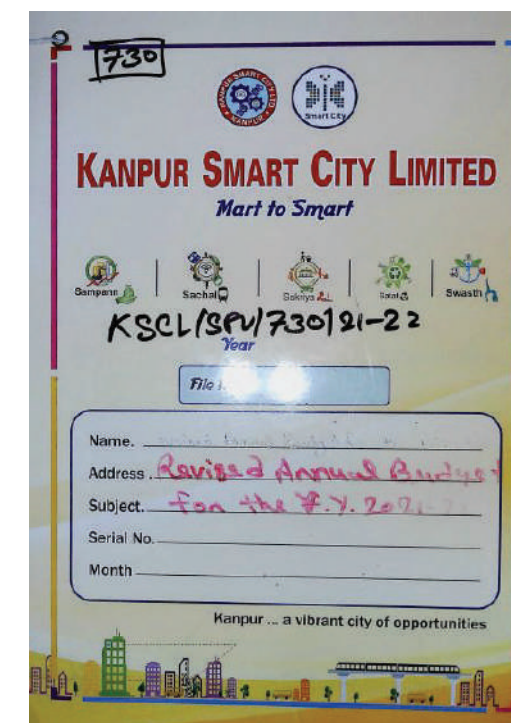 730
KANPUR SMART CITY LTD KANPUR
Smart City
KANPUR SMART CITY LIMITED
Mart to Smart
Sampann Sachal Sakriya Swasth
KSCL/SPV/730/21-22
Year
File
Name.
Address Revised Annual Budget
Subject. for the F.Y. 2021-
Serial No.
Month
Kanpur ... a vibrant city of opportunities